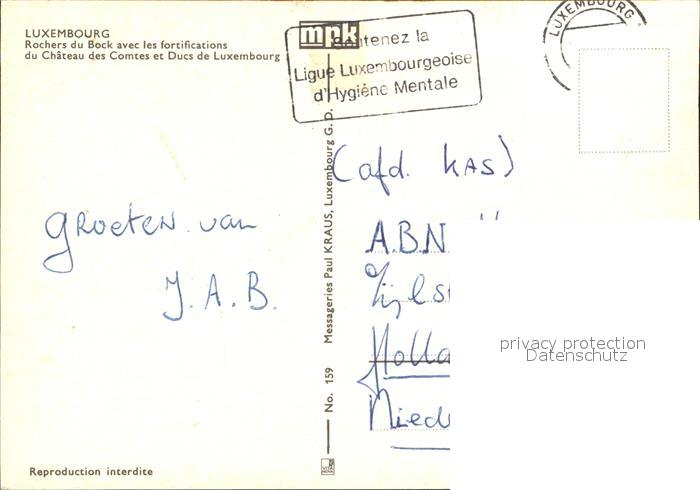 LUXEMBOURG
Rochers du Bock avec les fortifications
du Château des Comtes et Ducs de Luxembourg
mpk
Soutenez la
Ligue Luxembourgeoise
d'Hygiène Mentale
LUXEMBOURG
(afd. KAS)
Groeten van
J. A. B.
A.B.N
Holla
Nied
No. 159 Messageries Paul KRAUS, Luxembourg G. D.
privacy protection
Datenschutz
Reproduction interdite